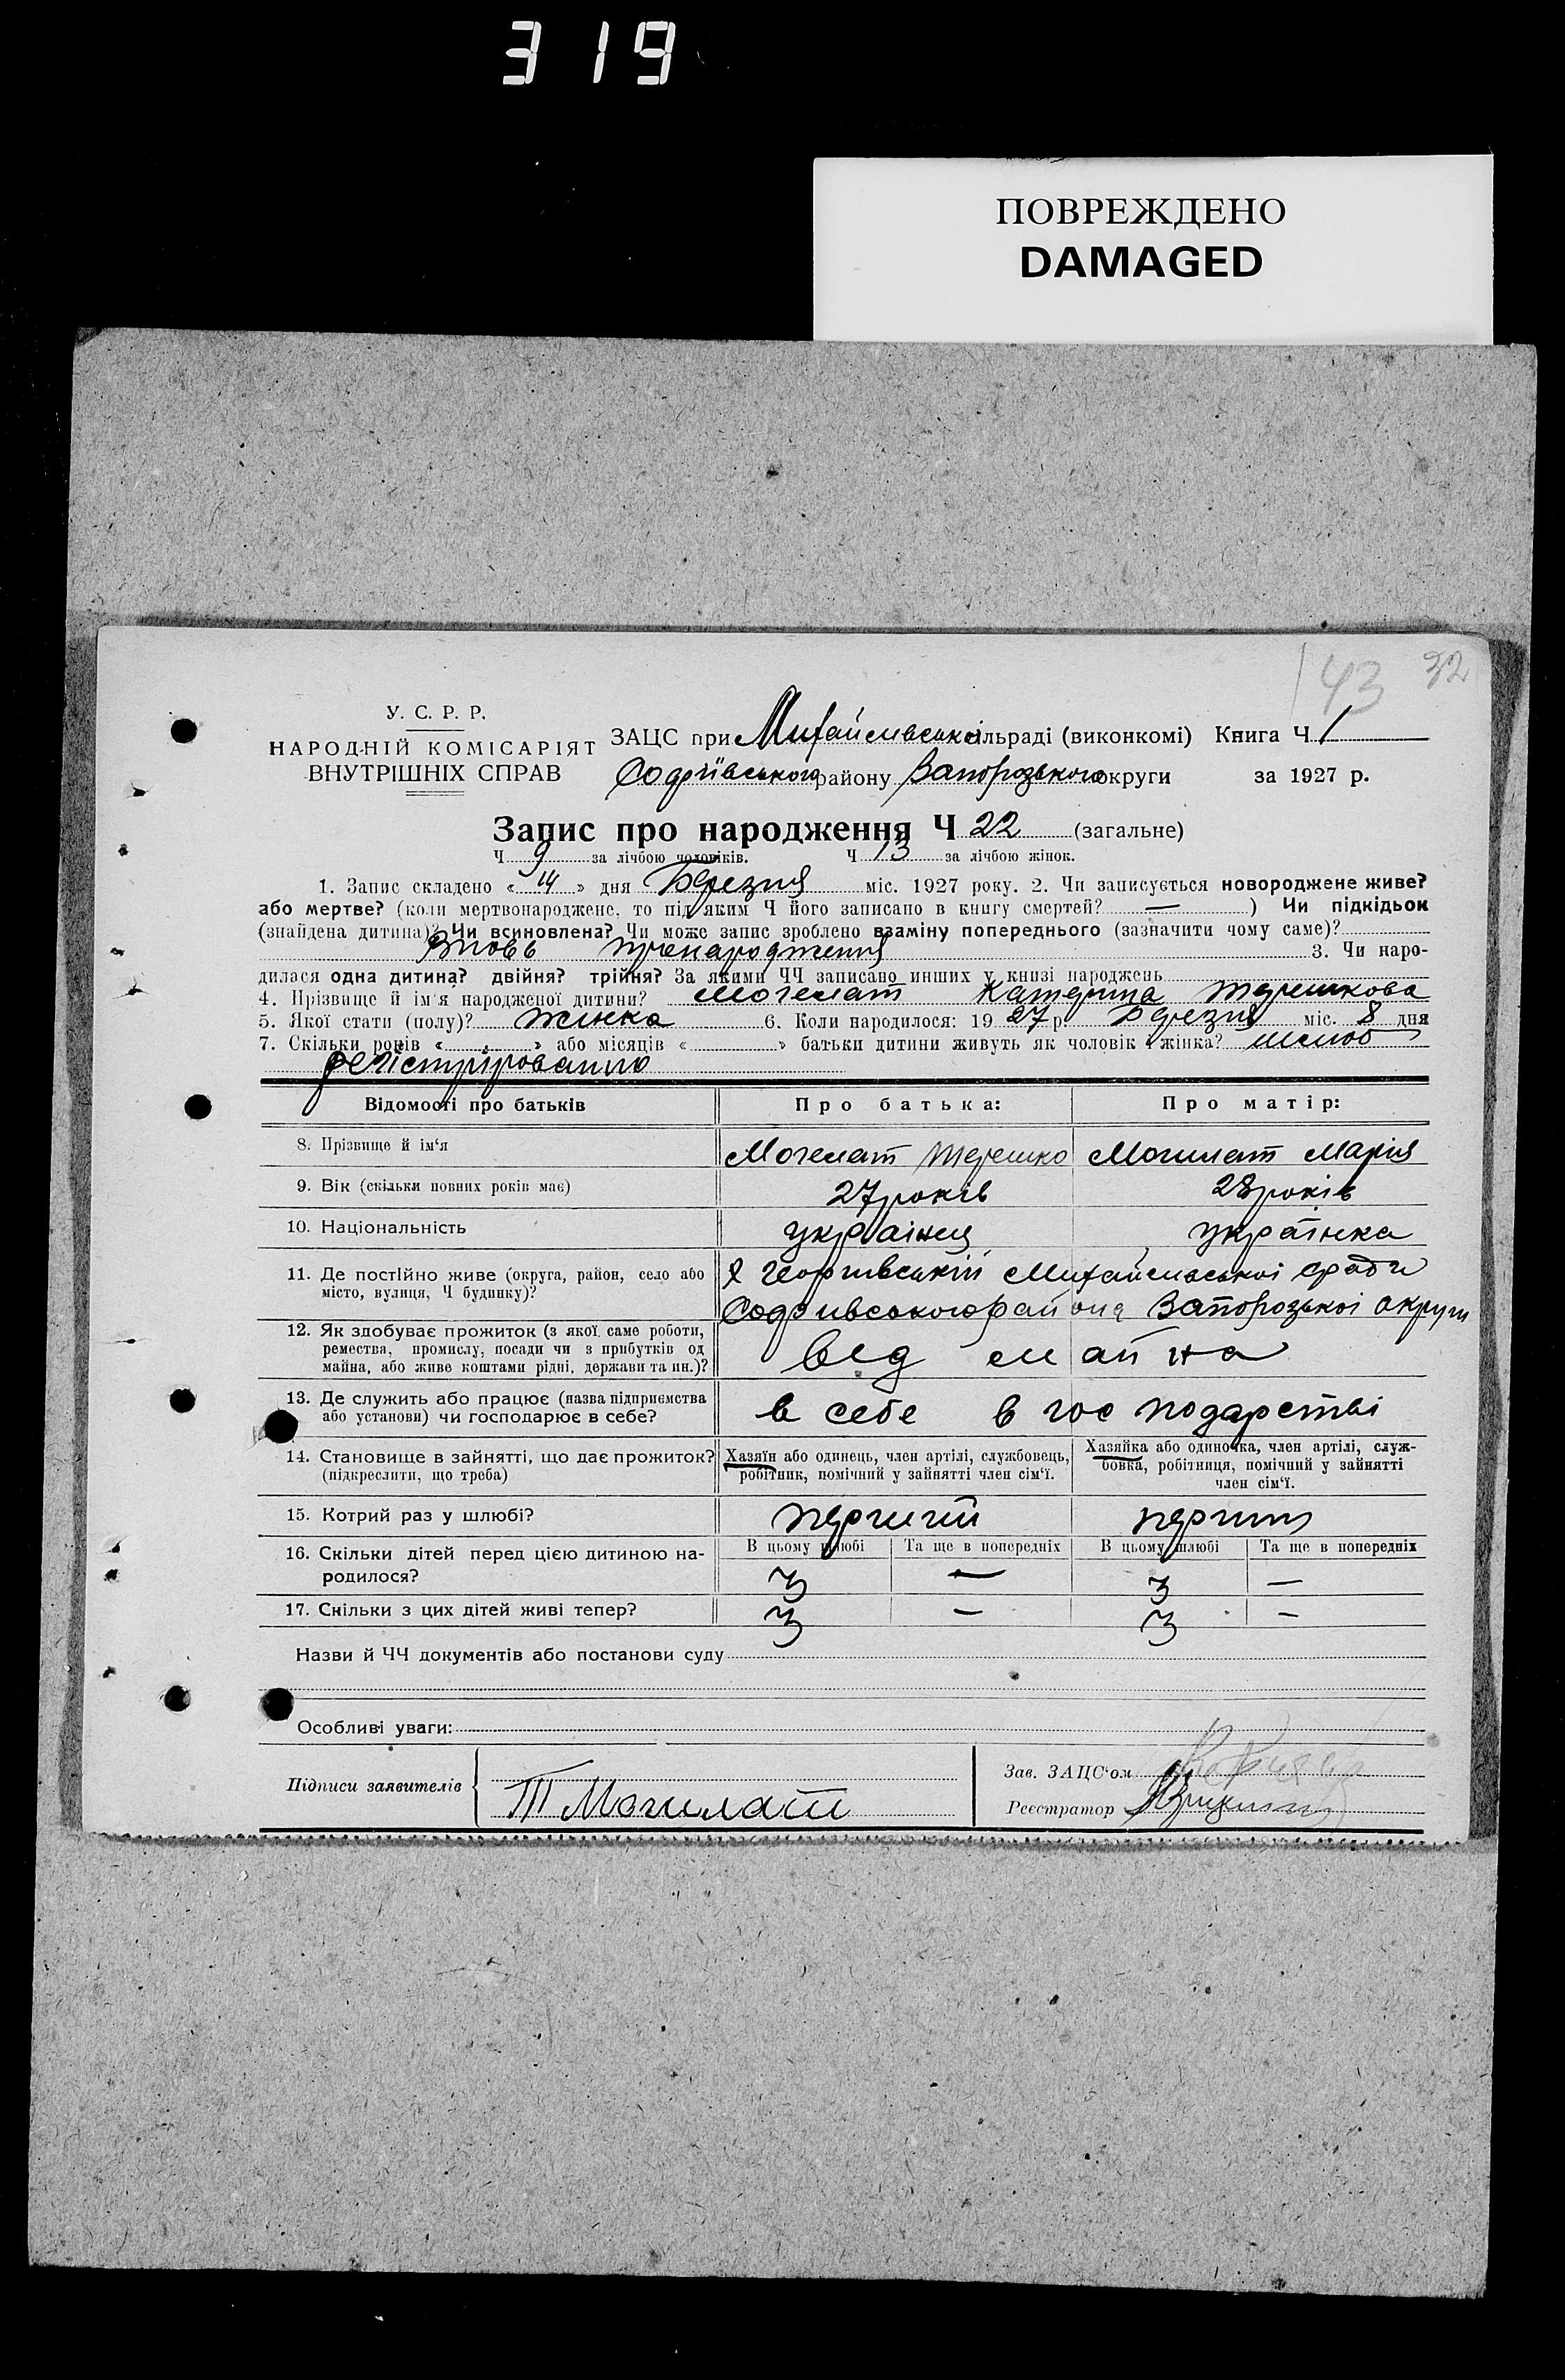 319
ПОВРЕЖДЕНО
DAMAGED
143 32
У. С. Р. Р.
НАРОДНІЙ КОМІСАРІЯТ
ВНУТРІШНІХ СПРАВ
ЗАЦС при Михайлівські сільраді (виконкомі) Книга Ч 1
Софіївського району Запорозького округи за 1927 р.
Запис про народження Ч 22 (загальне)
Ч 9 за лічбою чоловіків. Ч 13 за лічбою жінок.
1. Запис складено « 14 » дня Березня міс. 1927 року. 2. Чи записується новороджене живе?
або мертве? (коли мертвонароджене, то під яким Ч його записано в книгу смертей? — ) Чи підкідьок
(знайдена дитина)? Чи всиновлена? Чи може запис зроблено взаміну попереднього (зазначити чому саме)?
Вновь 3. Чи наро-
дилася одна дитина? двійня? трійня? За якими ЧЧ записано инших у книзі народжень
4. Прізвище й ім'я народженої дитини? Могелат Катерина Терешкова
5. Якої стати (полу)? жінка 6. Коли народилося: 19 27 р. Березня міс. 8 дня
7. Скільки років « » або місяців « » батьки дитини живуть як чоловік і жінка? шлюб
регістріровапно
Відомості про батьків
Про батька:
Про матір:
8. Прізвище й ім'я
Могелат Терешко
Могилат Марія
9. Вік (скільки повних років має)
27 років
28 років
10. Національність
украінец
українка
11. Де постійно живе (округа, район, село або
місто, вулиця, Ч будинку)?
Георгивській Михайлиської сради
Софиивського района Запорозької округи
12. Як здобуває прожиток (з якої саме роботи,
ремества, промислу, посади чи з прибутків од
майна, або живе коштами рідні, держави та ин.)?
від майна
13. Де служить або працює (назва підприємства
або установи) чи господарює в себе?
в себе в господарстві
14. Становище в зайнятті, що дає прожиток?
(підкреслити, що треба)
Хазяїн або одинець, член артілі, службовець,
робітник, помічний у зайнятті член сім'ї.
Хазяйка або одиночка, член артілі, служ-
бовка, робітниця, помічний у зайнятті
член сім'ї.
15. Котрий раз у шлюбі?
перший
перший
16. Скільки дітей перед цією дитиною на-
родилося?
В цьому шлюбі
Та ще в попередніх
В цьому шлюбі
Та ще в попередніх
3 — 3 —
17. Скільки з цих дітей живі тепер?
3 — 3 —
Назви й ЧЧ документів або постанови суду
Особливі уваги:
Підписи заявителів
Т Могилат
Зав. ЗАЦС'ом
Реєстратор